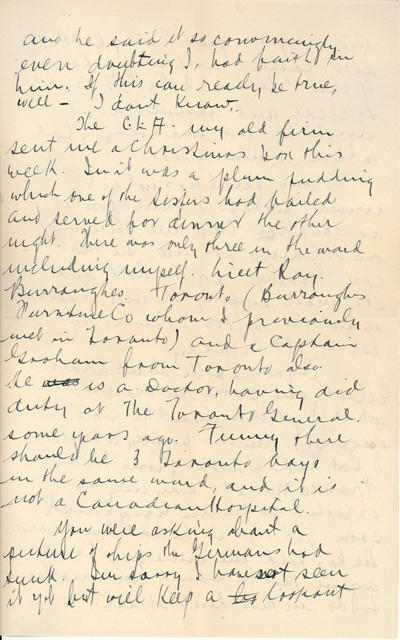 and he said it so convincingly
even doubting I, had faith in
him. If this can really be true,
well – I dont know.
The C.L.A. my old firm
sent me a Christmas box this
week. In it was a plum pudding
which one of the sisters had boiled
and served for dinner the other
night. There was only three in the ward
including myself. Lieut Ray.
Burroughes, Toronto (Burroughes
Furniture Co whom I previously
met in Toronto) and a Captain
Graham from Toronto also.
He was is a Doctor, having did
duty at The Toronto General.
some years ago. Funny there
should be 3 Toronto boys
in the same ward, and it is
not a Canadian Hospital.
You were asking about a
picture of ships the Germans had
sunk. I'm sorry I have not seen
it yet but will keep a lookout